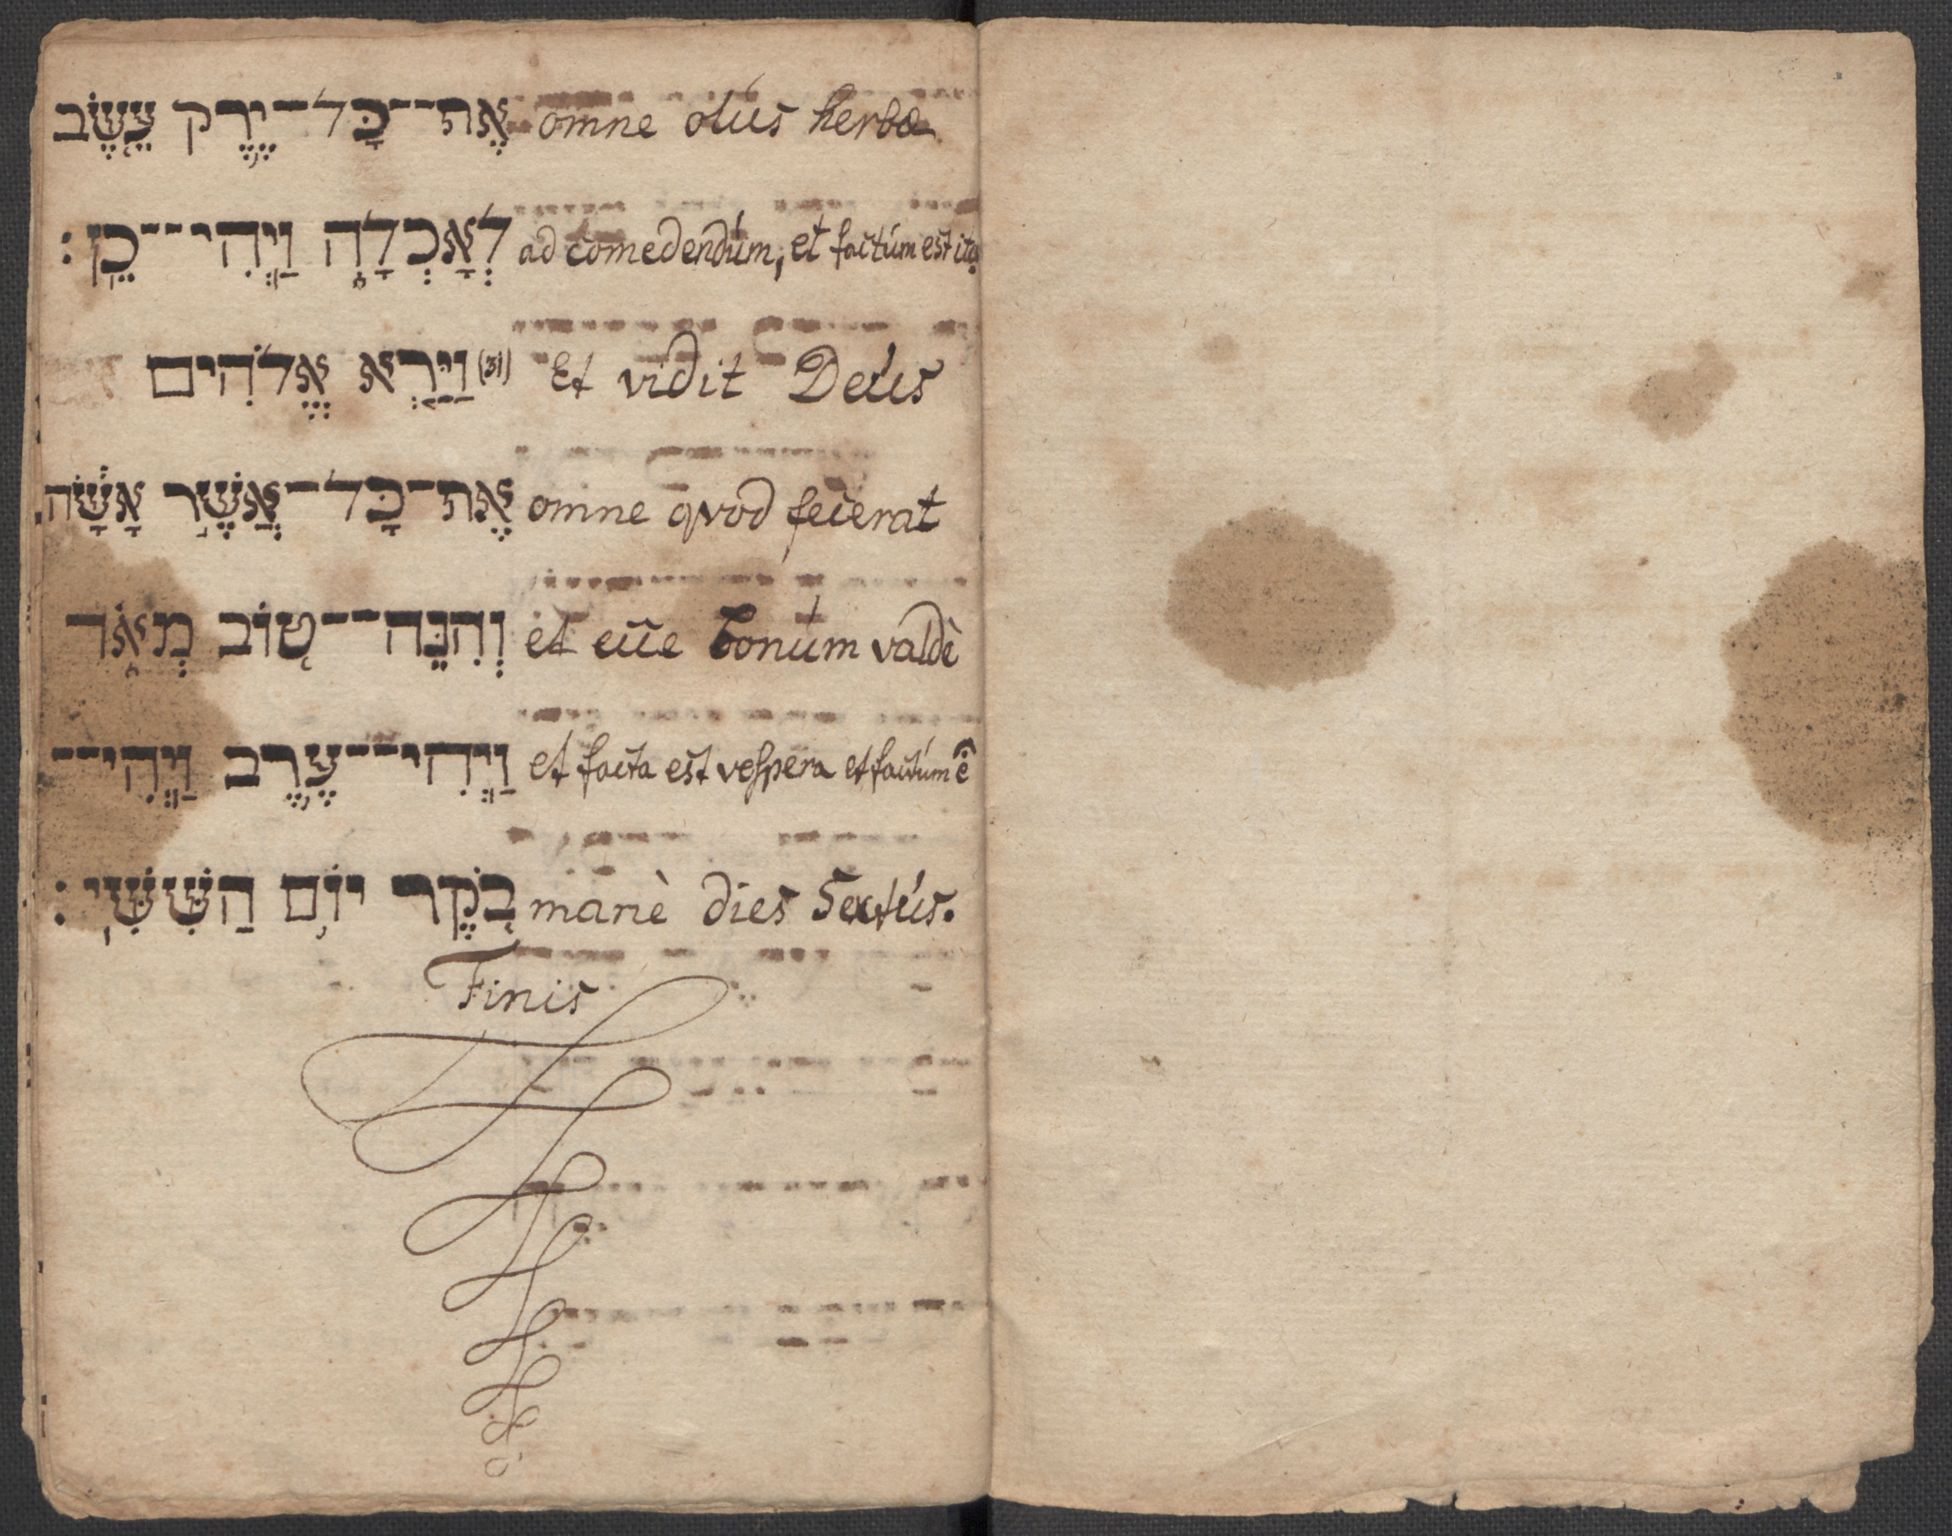 אֶת־כָּל־יֶרֶק עֵשֶׂב omne olus herbæ
לְאָכְלָה וַיְהִי־כֵן׃ ad comedendum, et factum est ita
(31) וַיַּרְא אֱלֹהִים Et vidit Deus
אֶת־כָּל־אֲשֶׁר אָשָׂה omne qvod fecerat
וְהִנֵּה־טוֹב מְאֹד et ecce bonum valdè
וַיְהִי־עֶרֶב וַיְהִי־ et facta est vespera et factum ê
בֹקֶר יוֹם הַשִּׁשִּׁי׃ manè dies Sextus.
Finis